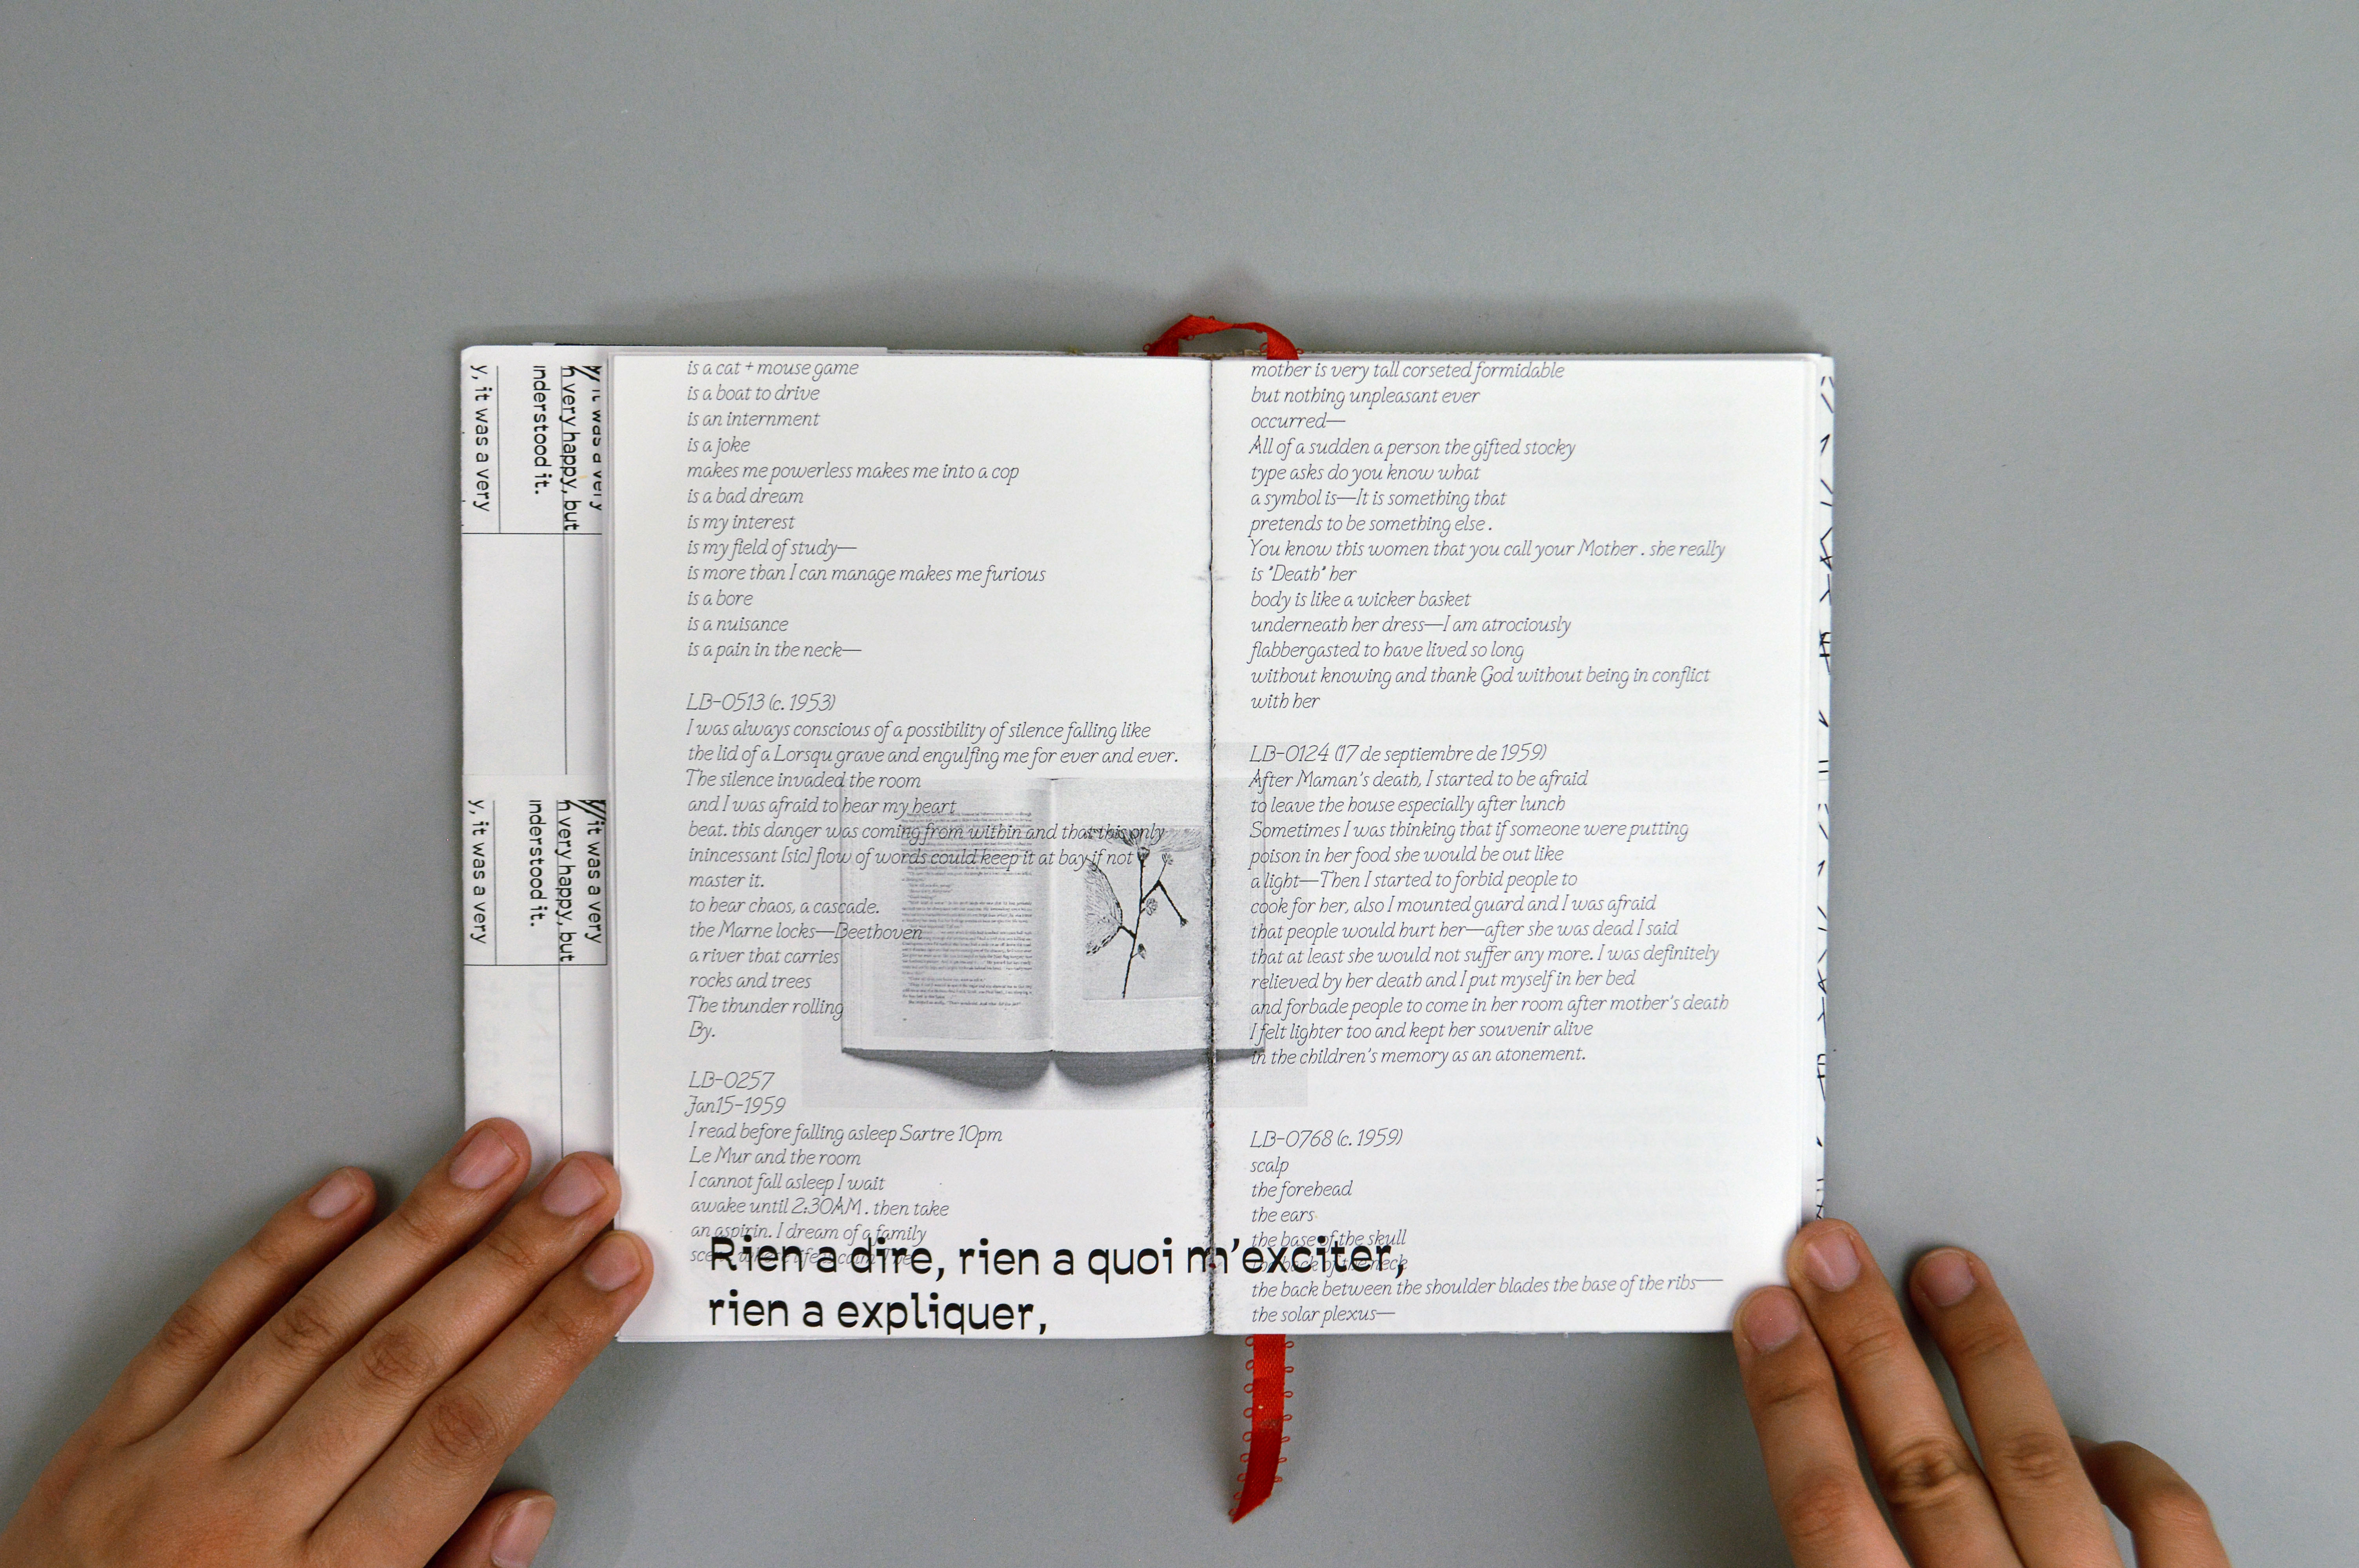 y, it was a very
inderstood it.
h very happy, but
it was a very
y, it was a very
inderstood it.
h very happy, but
it was a very
is a cat + mouse game
is a boat to drive
is an internment
is a joke
makes me powerless makes me into a cop
is a bad dream
is my interest
is my field of study—
is more than I can manage makes me furious
is a bore
is a nuisance
is a pain in the neck—
LB-0513 (c. 1953)
I was always conscious of a possibility of silence falling like
the lid of a Lorsqu grave and engulfing me for ever and ever.
The silence invaded the room
and I was afraid to hear my heart
beat. this danger was coming from within and that this only
inincessant [sic] flow of words could keep it at bay if not
master it.
to hear chaos, a cascade.
the Marne locks—Beethoven
a river that carries
rocks and trees
The thunder rolling
By.
LB-0257
Jan15-1959
I read before falling asleep Sartre 10pm
Le Mur and the room
I cannot fall asleep I wait
awake until 2:30AM . then take
an aspirin. I dream of a family
Rien a dire, rien a quoi m'exciter,
rien a expliquer,
mother is very tall corseted formidable
but nothing unpleasant ever
occurred—
All of a sudden a person the gifted stocky
type asks do you know what
a symbol is—It is something that
pretends to be something else .
You know this women that you call your Mother . she really
is "Death" her
body is like a wicker basket
underneath her dress—I am atrociously
flabbergasted to have lived so long
without knowing and thank God without being in conflict
with her
LB-0124 (17 de septiembre de 1959)
After Maman's death, I started to be afraid
to leave the house especially after lunch
Sometimes I was thinking that if someone were putting
poison in her food she would be out like
a light—Then I started to forbid people to
cook for her, also I mounted guard and I was afraid
that people would hurt her—after she was dead I said
that at least she would not suffer any more. I was definitely
relieved by her death and I put myself in her bed
and forbade people to come in her room after mother's death
I felt lighter too and kept her souvenir alive
in the children's memory as an atonement.
LB-0768 (c. 1959)
scalp
the forehead
the ears
the base of the skull
the back of the neck
the back between the shoulder blades the base of the ribs—
the solar plexus—